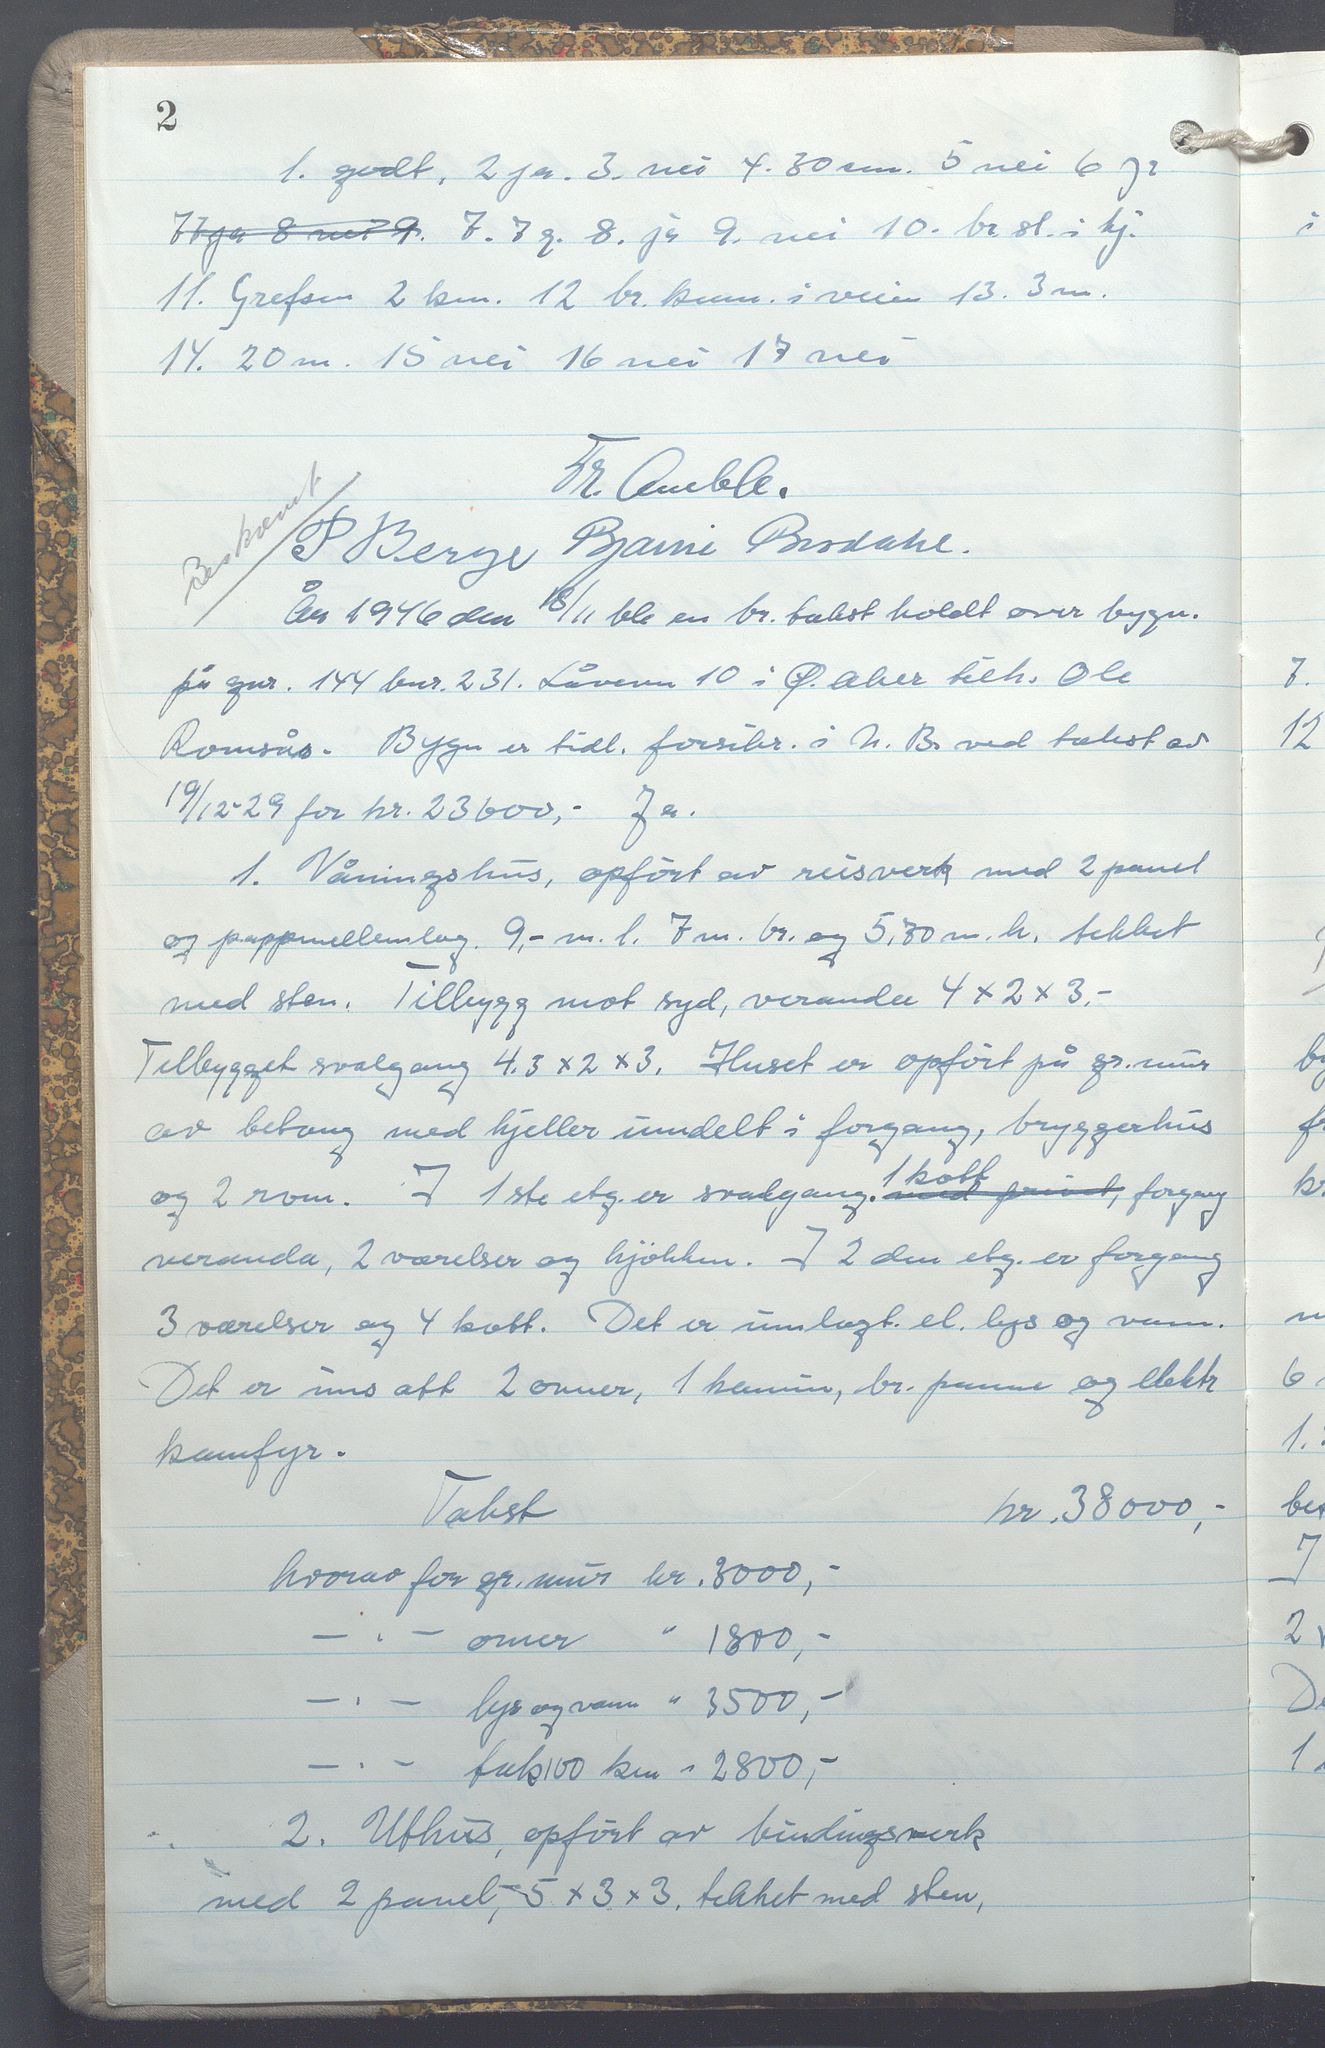 2
1. godt, 2 ja. 3. nei 4. 30 cm. 5 nei 6 ja
7 7 ga 8 nei 9. 7. 7 g. 8. ja 9. nei 10. br sl. i kj.
11. Grefsen 2 km. 12 br. kum. i veien 13. 3 m.
14. 20 m. 15 nei 16 nei 17 nei
Fr. Amble.
P Berge Bjarne Brodahl.
Beskrevet
År 1946 den 18/11 ble en br. takst holdt over bygn.
på gnr. 144 bnr. 231. Låveven 10 i Ø. Aker tilh. Ole
Romsås. Bygn er tidl. forsikr. i N. B. ved takst av
19/12-29 for kr. 23600,- Ja.
1. Våningshus, opført av reisverk med 2 panel
og pappmellemlag. 9,- m. l. 7 m. br. og 5,80 m. h. tekket
med sten. Tilbygg mot syd, veranda 4 x 2 x 3,-
Tilbygget svalgang 4.3 x 2 x 3. Huset er opført på gr. mur
av betong med kjeller inndelt i forgang, bryggerhus
og 2 rom. I 1ste etg. er svalgang. med privet, 1 kott forgang
veranda, 2 værelser og kjøkken. I 2den etg. er forgang
3 værelser og 4 kott. Det er innlagt. el. lys og vann.
Det er innsatt 2 ovner, 1 kamin, br. panne og elektr
komfyr.
Takst kr. 38000,-
hvorav for gr. mur kr. 3000,-
— " — ovner " 1800,-
— " — lys og vann " 3500,-
— " — tak 100 km " 2800,-
2. Uthus, opført av bindingsverk
med 2 panel, 5 x 3 x 3. tekket med sten,
i
7.
12
by
f
kr
6
1.
bet
I
2 v
De
1